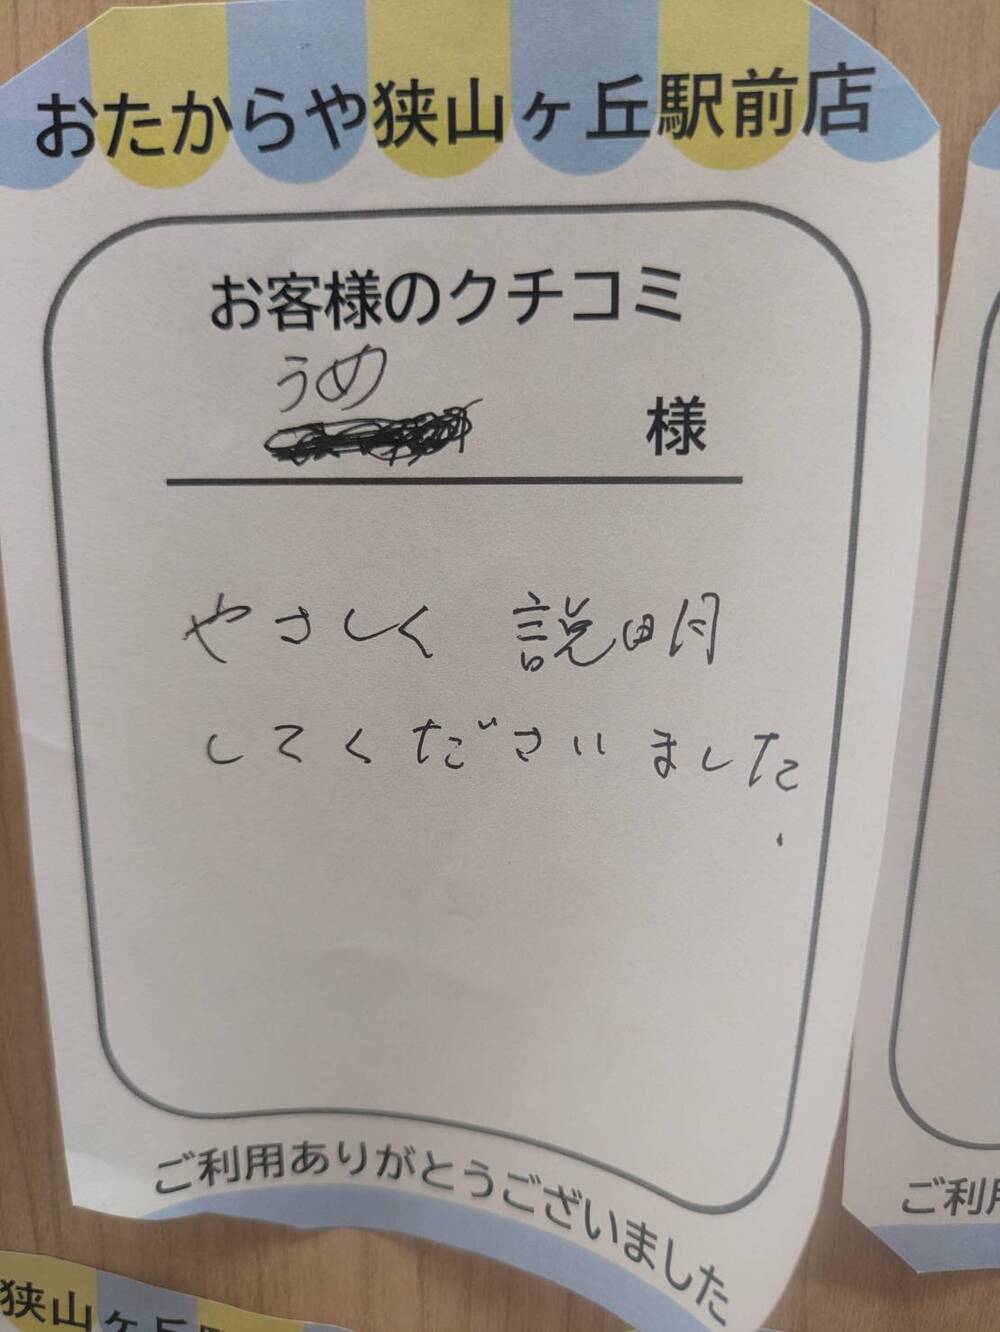 おたからや狭山ヶ丘駅前店
お客様のクチコミ
うめ
様
やさしく 説明
してくださいました.
ご利用ありがとうございました
ご利用
狭山ヶ丘駅